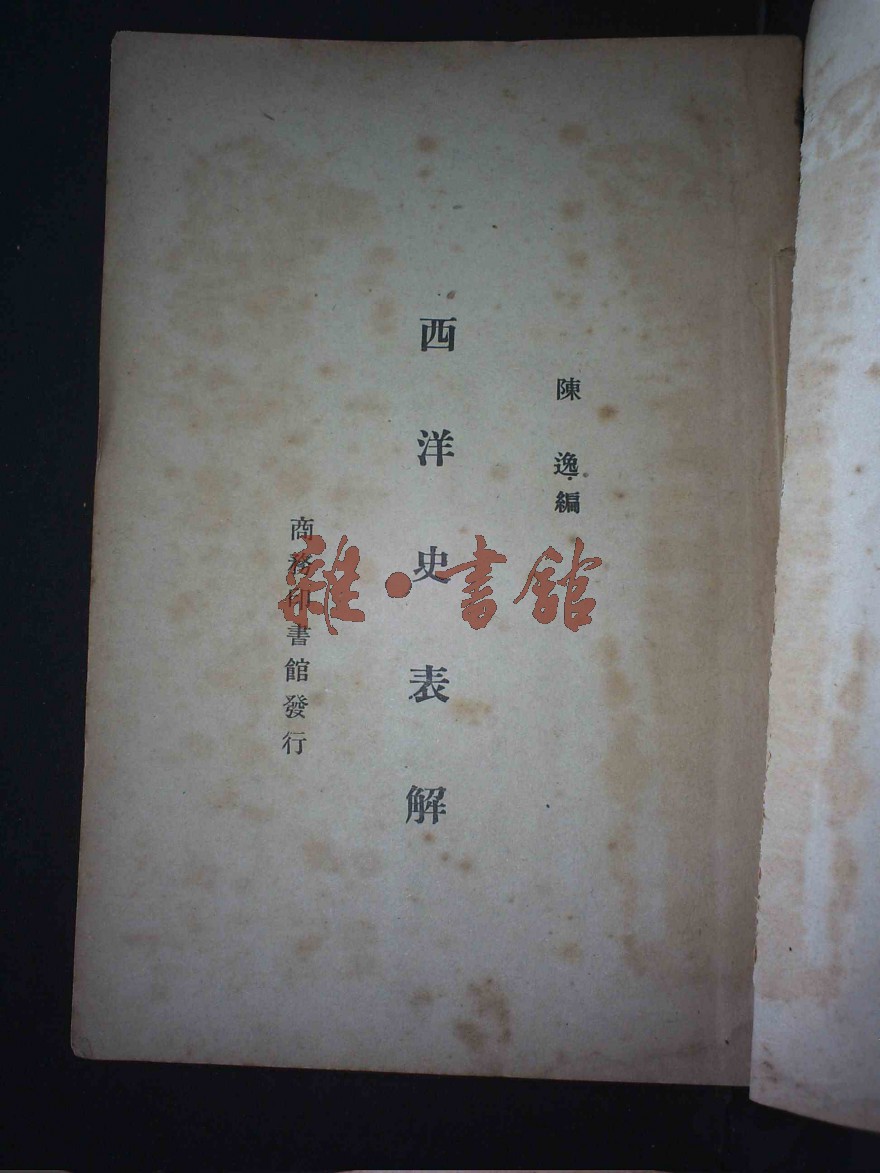 陳逸編
西洋史表解
商務印書館發行
雜·書館